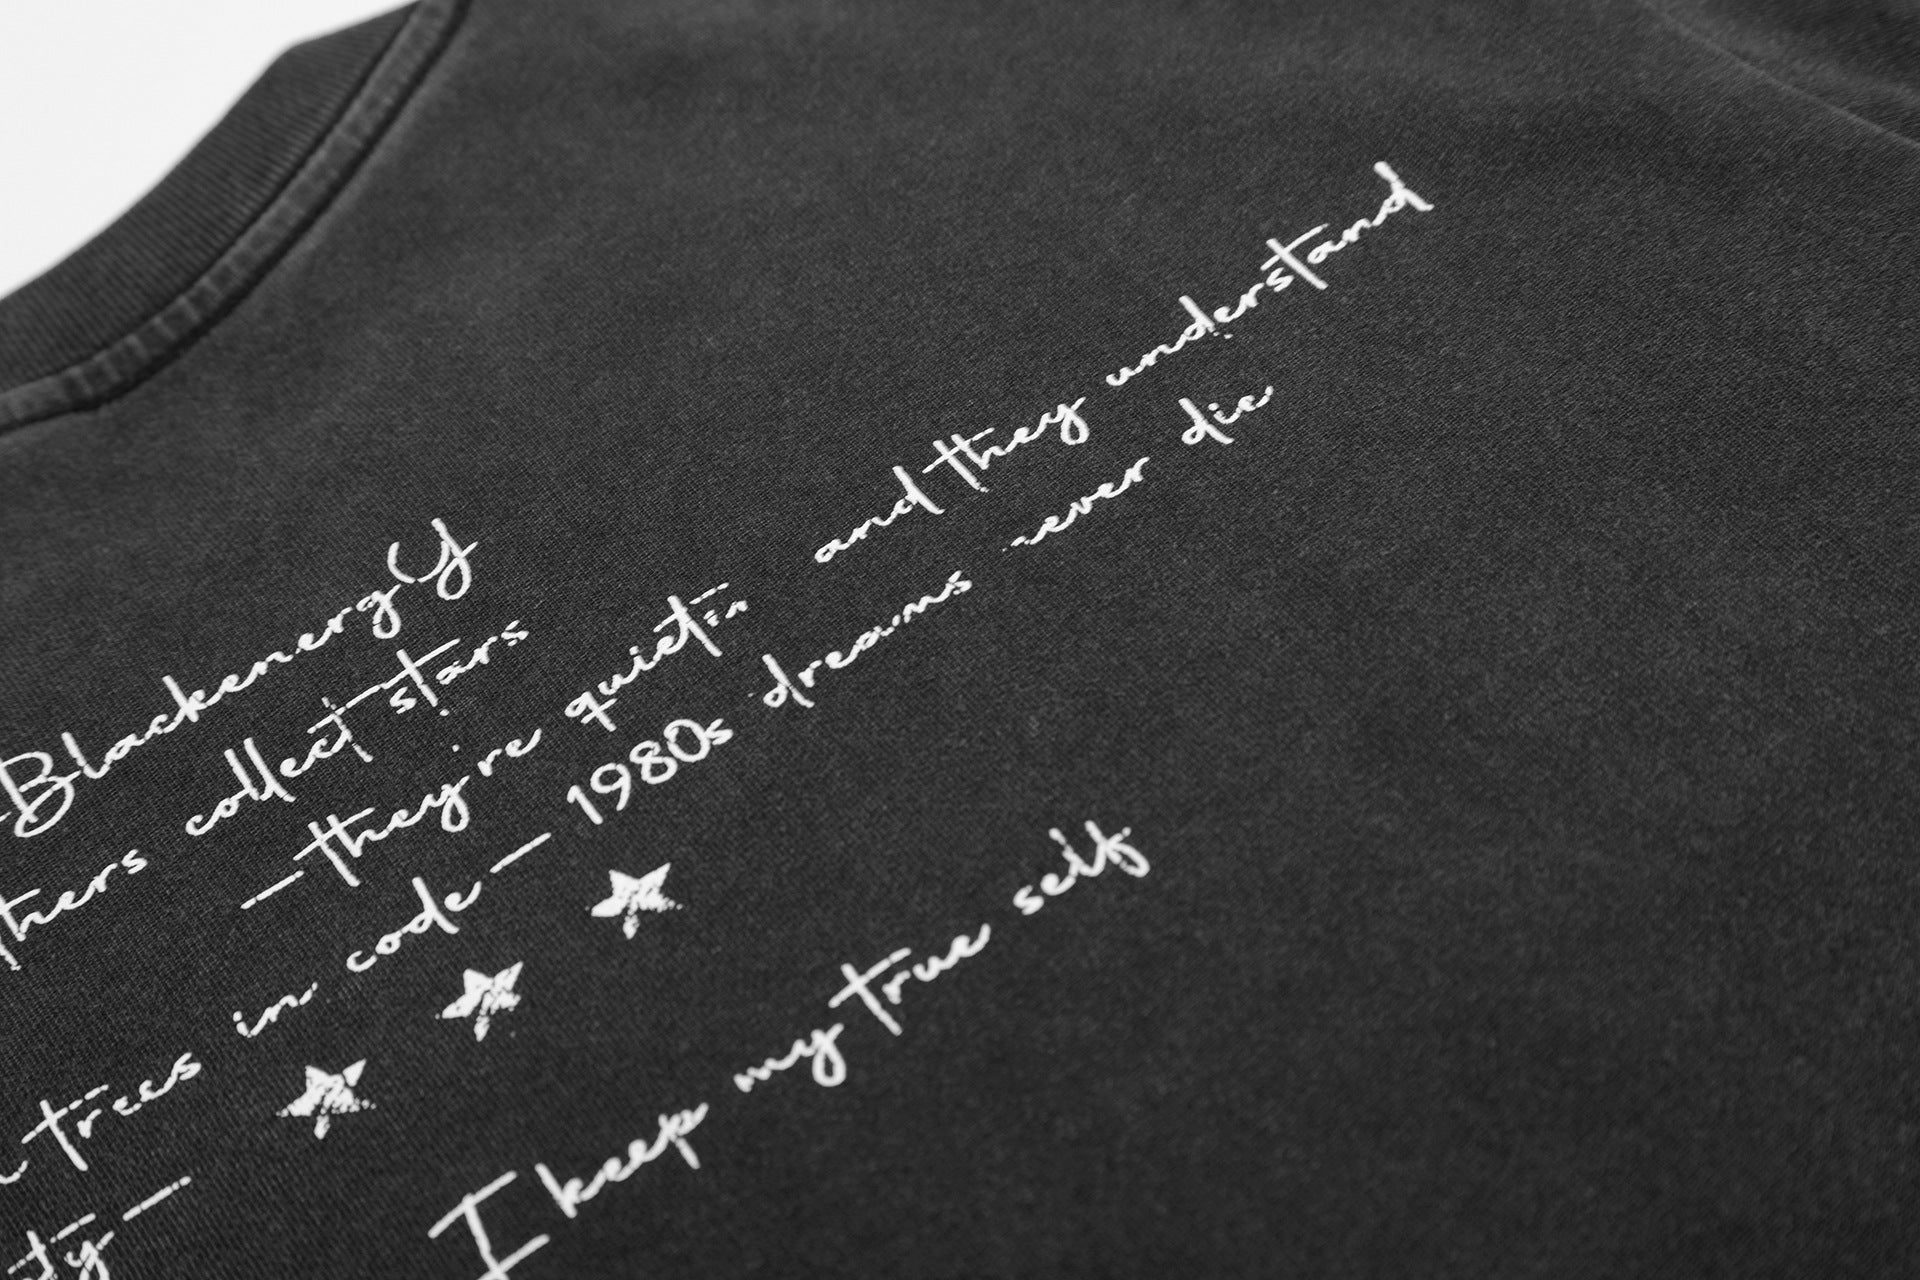 BlackenergY
collect stars
—they're quiet and they understand
trees in code — 1980s dreams never die
—
I keep my true self